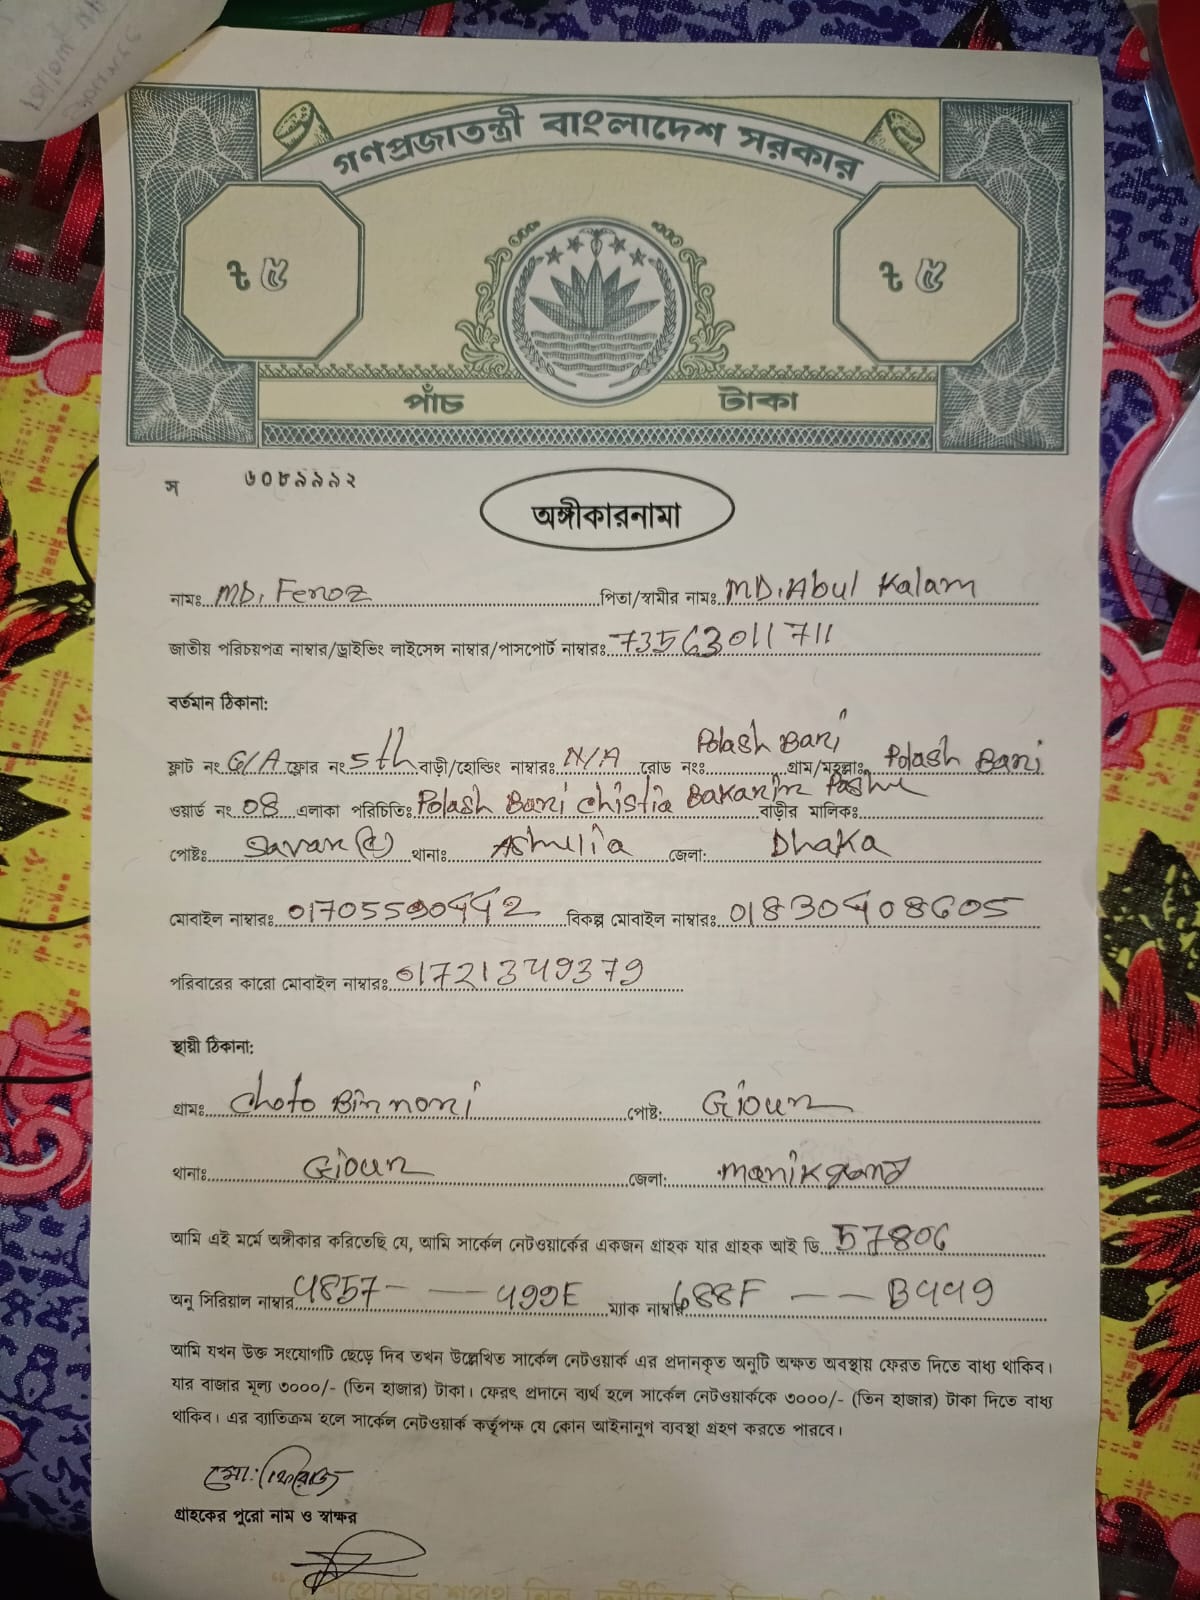 গণপ্রজাতন্ত্রী বাংলাদেশ সরকার
৳ ৫ ৳ ৫
পাঁচ টাকা
স ৬০৮৯৯৯২
অঙ্গীকারনামা
নামঃ MD. Feroz পিতা/স্বামীর নামঃ MD. Abul Kalam
জাতীয় পরিচয়পত্র নাম্বার/ড্রাইভিং লাইসেন্স নাম্বার/পাসপোর্ট নাম্বারঃ 7356301171​1
বর্তমান ঠিকানা:
ফ্লাট নং G/A ফ্লোর নং 5th বাড়ী/হোল্ডিং নাম্বারঃ N/A রোড নংঃ Polash Bari গ্রাম/মহল্লাঃ Polash Bari
ওয়ার্ড নং 08 এলাকা পরিচিতিঃ Polash Bari chistia Bakarir Pashe বাড়ীর মালিকঃ
পোষ্টঃ Savar থানাঃ Ashulia জেলা: Dhaka
মোবাইল নাম্বারঃ 01705590442 বিকল্প মোবাইল নাম্বারঃ 01830408605
পরিবারের কারো মোবাইল নাম্বারঃ 01721349379
স্থায়ী ঠিকানা:
গ্রামঃ Choto Binnori পোষ্ট: Giour
থানাঃ Giour জেলা: Manikgonj
আমি এই মর্মে অঙ্গীকার করিতেছি যে, আমি সার্কেল নেটওয়ার্কের একজন গ্রাহক যার গ্রাহক আই ডি 57806
অনু সিরিয়াল নাম্বার 4857 — — 499E ম্যাক নাম্বার 688F — — B449
আমি যখন উক্ত সংযোগটি ছেড়ে দিব তখন উল্লেখিত সার্কেল নেটওয়ার্ক এর প্রদানকৃত অনুটি অক্ষত অবস্থায় ফেরত দিতে বাধ্য থাকিব।
যার বাজার মূল্য ৩০০০/- (তিন হাজার) টাকা। ফেরৎ প্রদানে ব্যর্থ হলে সার্কেল নেটওয়ার্ককে ৩০০০/- (তিন হাজার) টাকা দিতে বাধ্য
থাকিব। এর ব্যাতিক্রম হলে সার্কেল নেটওয়ার্ক কর্তৃপক্ষ যে কোন আইনানুগ ব্যবস্থা গ্রহণ করতে পারবে।
মো: ফিরোজ
গ্রাহকের পুরো নাম ও স্বাক্ষর